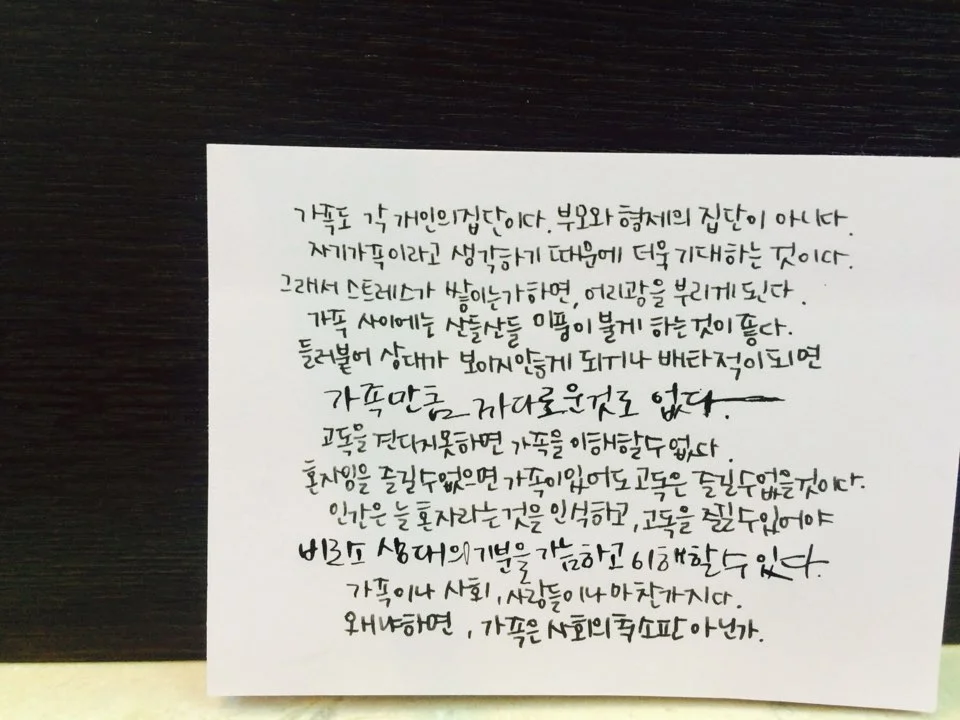 가족도 각 개인의 집단이다. 부모와 형제의 집단이 아니다.
자기가족이라고 생각하기 때문에 더욱 기대하는 것이다.
그래서 스트레스가 쌓이는가하면, 어리광을 부리게 된다.
가족 사이에는 산들산들 미풍이 불게 하는것이 좋다.
들러붙어 상대가 보이지않게 되거나 배타적이되면
가족만큼 까다로운것도 없다.
고독을 견디지못하면 가족을 이해할수없다
혼자임을 즐길수없으면 가족이있어도 고독은 즐길수없을것이다.
인간은 늘 혼자라는것을 인식하고, 고독을 즐길수있어야
비로소 상대의 기분을 가늠하고 이해할수 있다.
가족이나 사회, 사람들이나 마찬가지다.
왜냐하면, 가족은 사회의 축소판 아닌가.